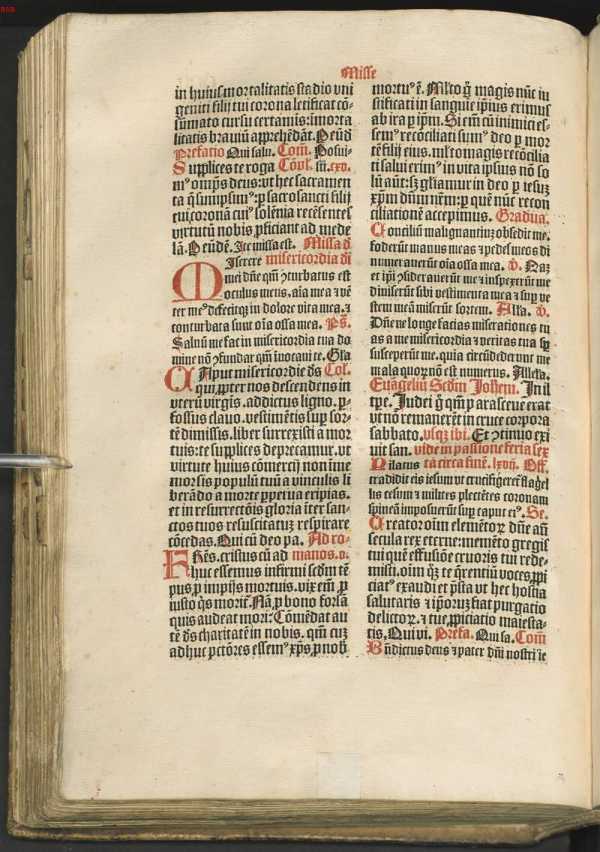 Misse
in huius mortalitatis stadio vni
geniti filij tui corona letificat cõ⸗
sũmato cursu certamĩs: ĩmorta
litatis brauiũ apprehẽdãt. Per eũd
Prefatio Qui salu. Com̃. Posui⸗
Supplices te roga Cõpl. fñ. cxv.
mꝰ omp̃s deus: vt hec sacramen
ta q̃ sumpsimꝰ: ꝑ sacrosancti filij
tui coronã cuiꝰ solẽnia recẽsentes
virtutũ nobis ꝓficiant ad mede
lã. Per eũdẽ. Ite missa est. Missa d̃
Iserere misericordia dĩ
M mei dñe qm̃ ꝯturbatus est
oculus meus, aĩa mea ⁊ vẽ
ter meꝰ defecitqꝫ in dolore vita mea. ⁊
conturbata sunt oĩa ossa mea. Ps̃.
Saluũ me fac in misericordia tua do
mine nõ ꝯfundar qm̃ inuocaui te. Gla
Aput misericordie ds̃ Col.
qui ꝓpter nos descendens in
vterũ virgis. addictus ligno. ꝑ⸗
fossus clauo. vestimẽtis suꝑ sor⸗
tẽ dimissis. liber surrexisti a mor
tuis: te supplices deprecamur. vt
virtute huius cõmercij non ĩme
mor sis populũ tuũ a vinculis li
berãdo a morte ꝑpetua eripias.
et in resurrectõis gloria ĩter san⸗
ctos tuos resuscitatuꝫ respirare
cõcedas. Qui cũ deo pa. Ad ro⸗
FRẽs. cristus cũ ad manos. v.
huc essemus infirmi scdm tẽ
pus, ꝓ impijs mortuis. vix em̃ ꝓ
iusto q̃s morit᷑. Nã ꝓ bono forsã
quis audeat mori: Cõmẽdat au
tẽ ds̃ charitatẽ in nobis. qm̃ cuꝫ
adhuc pctõres essemꝰ xp̃s ꝓ nob̃
mortuꝰ ẽ. Mlto g̃ magis nũc iu
stificati in sanguie ip̃ius erimus
ab ira ꝑ ip̃m. Si em̃ cũ inimici es⸗
semꝰ recõciliati sumꝰ deo ꝑ mor
tẽ filij eius. mlto magis recõcilia
ti salui erimꝰ in vita ipsius nõ so
lũ aũt: sꝫ gl̃iamur in deo ꝑ iesuꝫ
xp̃m dñm nr̃m: ꝑ quẽ nũc recon
ciliationẽ accepimus. Gradua.
Conciliũ malignantiuꝫ obsedit me.
foderũt manus meas ⁊ pedes meos di
numerauerũt oĩa ossa mea. v̾. Naꝫ
et ip̃i ꝯsiderauerũt me ⁊ inspexerũt me
diuiserũt sibi vestimenta mea ⁊ suꝑ ve
stem meã miserũt sortem. Alla. v̾.
Dñe ne longe facias miserationes tu
as a me misericordia ⁊ veritas tua sꝑ
susceperũt me. quia circũdederunt me
mala quoꝝ nõ est numerus. Allela.
Euãgeliũ Scdm Johem. In il
tpe. Judei g̃ qm̃ parasceue erat
vt nõ remanerẽt in cruce corpora
sabbato. vsqꝫ ibi. Et ꝯtinuo exi
uit san. vide in passione feria sex
Pilatus ta circa finẽ. lxvij. Off.
tradidit eis iesum vt crucifigeret̃ flagel
lis cesum ⁊ milites plectẽtes coronam
spineã imposuerũt suꝑ caput eiꝰ. Se.
Creator oĩm elemẽtoꝝ dñe añ
secula rex eterne: memẽto gregis
tui quẽ effusiõe cruoris tui rede⸗
misti. oĩm qꝫ te q̃rentiũ voces ꝓpi
ciatꝰ exaudi et p̃sta vt hec hostia
salutaris ⁊ ip̃oruꝫ fiat purgatio
delictoꝝ. ⁊ tue ꝓpiciatio maiesta⸗
tis. Qui vi. Prefa. Qui sa. Com̃
Bñdictus deus ⁊ pater dñi nostri ie